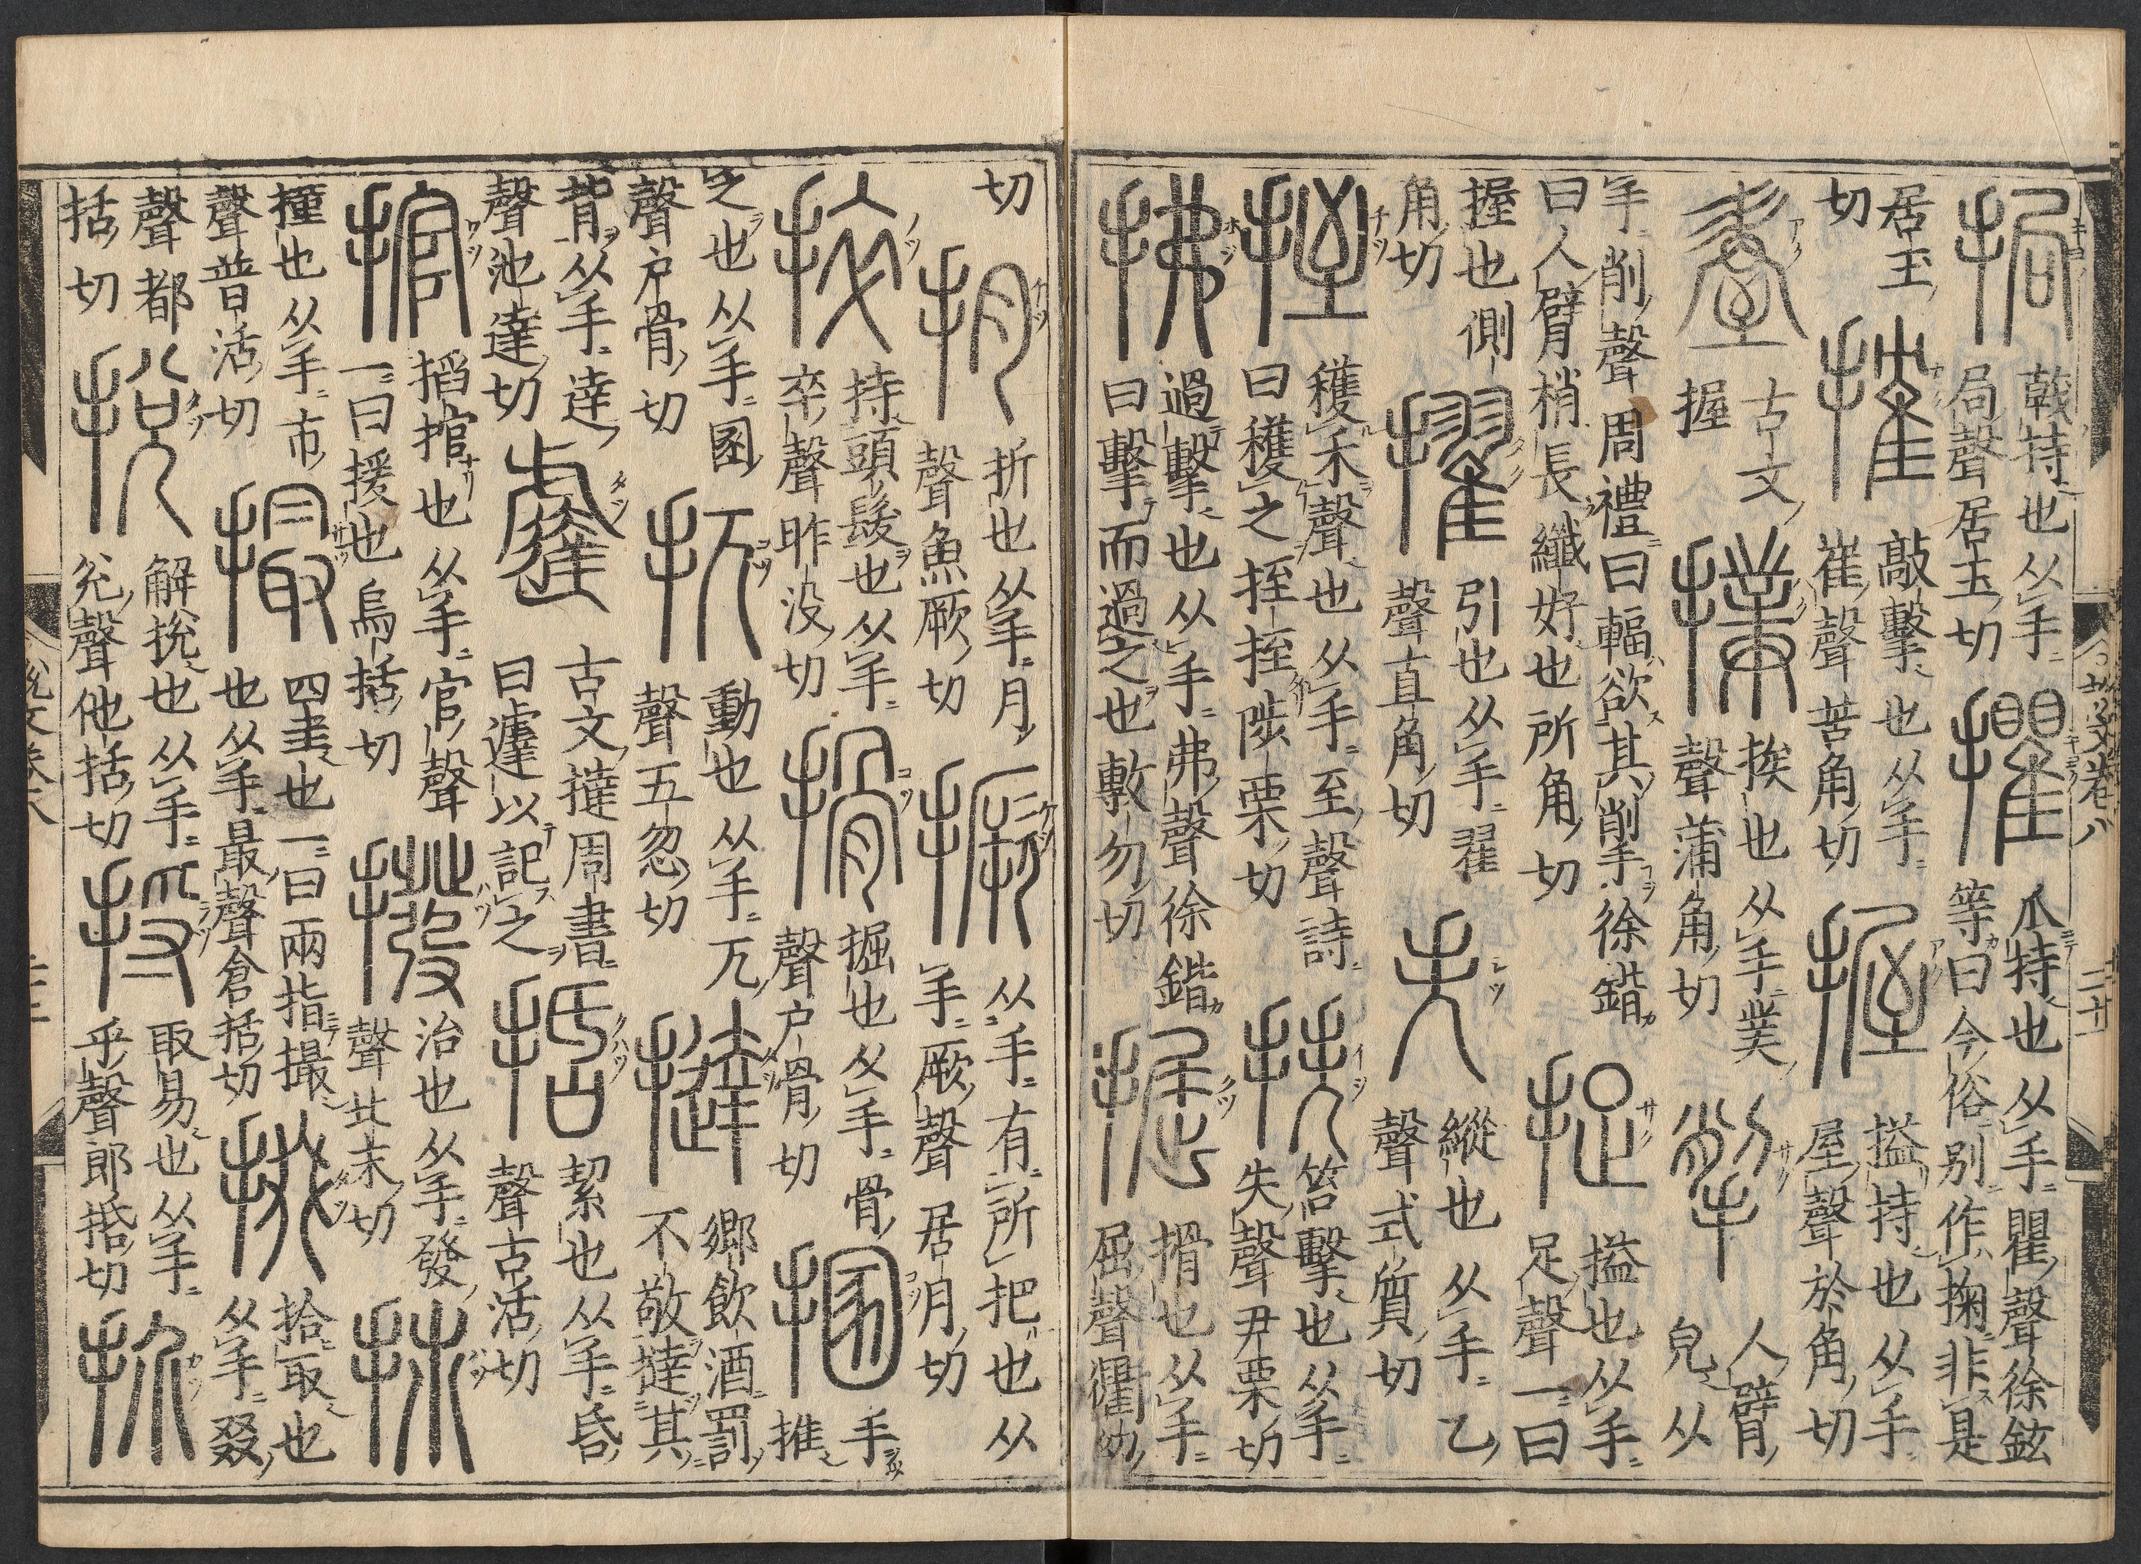 挶戟持也从手局聲居玉切㩴爪持也从手瞿聲徐鉉等曰今俗別作掬非是
居玉切搉敲擊也从手崔聲苦角切握搤持也从手屋聲於角切
古文握撲挨也从手菐聲蒲角切揱人臂皃从
手削聲周禮曰輻欲其揱徐鍇曰人臂梢長纖好也所角切捉搤也从手足聲一曰
握也側角切擢引也从手翟聲直角切失縱也从手乙聲式質切
挃穫禾聲也从手至聲詩曰穫之挃挃陟栗切抶笞擊也从手失聲尹栗切
拂過擊也从手弗聲徐鍇曰擊而過之也敷勿切掘搰也从手屈聲衢勿
切抈折也从手月聲魚厥切撅从手有所把也从手厥聲居月切
捽持頭髮也从手卒聲昨没切搰掘也从手骨聲户骨切㨡手推
之也从手圂聲户骨切扤動也从手兀聲五忽切撻鄉飲酒罰不敬撻其
背从手達聲池達切古文撻周書曰遽以記之括絜也从手𠯑聲古活切
捾搯捾也从手官聲一曰援也烏括切撥治也从手發聲北末切
撞也从手巿聲普活切撮四圭也一曰兩指撮也从手最聲倉括切掇拾取也从手叕
聲都括切挩解挩也从手兊聲他括切捋取易也从手寽聲郎括切